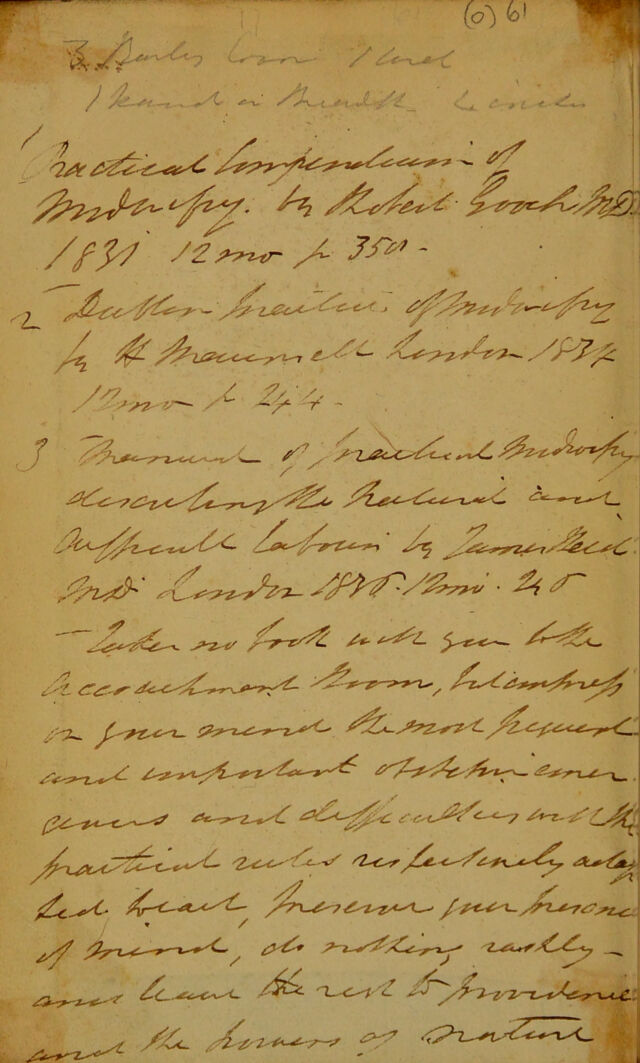 (6) 61
3 Barley Corn 1 Inch
1 hand in Breadth 4 inches
1 Practical Compendium of
Midwifry. by Robert Gooch MD.
1831 12mo p 350.
2 Dublin Practice of Midwifry
by H Maunsell London 1834
12mo p 244.
3 Manual of practical Midwifry
describing the Natural and
difficult labours by James Reid
MD. London 1836. 12mo.
Take no book with you to the
accouchment Room, but impress
on your mind the most frequent
and important obstetric emer
gences and difficulties with the
practical rules respectively adap
ted to each, preserve your presence
of mind, do nothing rashly -
and leave the rest to providence
and the powers of nature